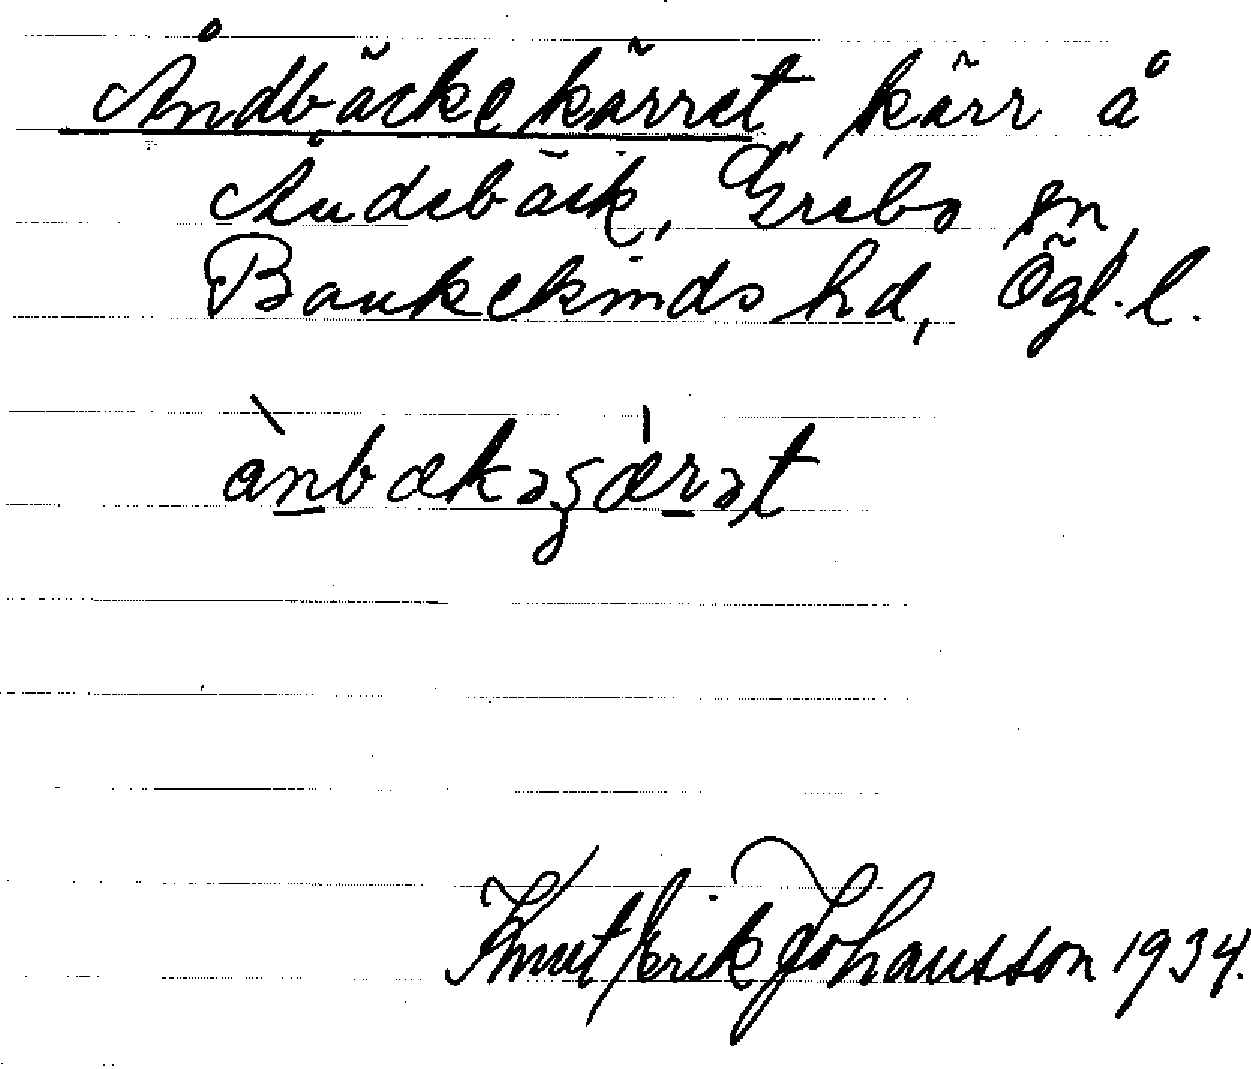 Åndbäckekärret, kärr å
Åndebäck, Grebo sn,
Bankekinds hd, Ögl. l.
ànbækəʂærət
Knut Erik Johansson 1934.